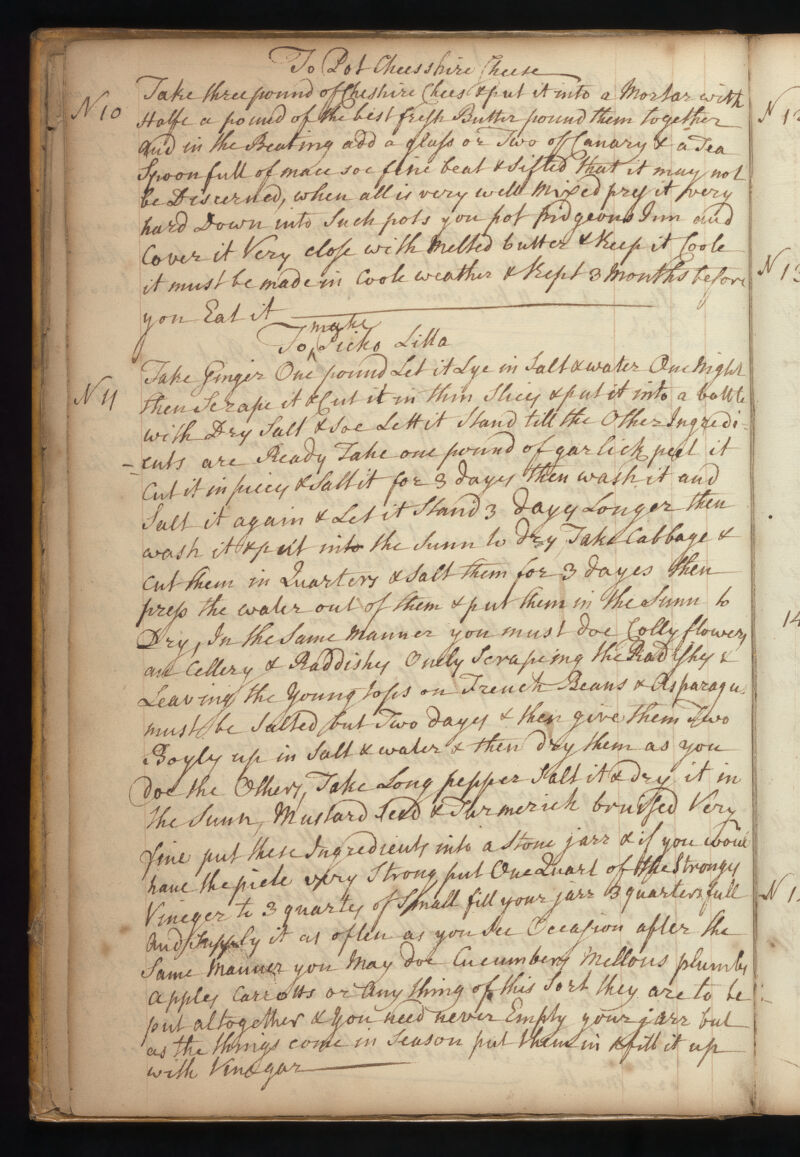 To Pot Cheesshire Cheese
N 10 Take three pound of Cheshire Chees & put it into a Mortar with
Halfe a pound of the best fresh Butter pound them together
And in the Beating add a glass or Two of Canary & a Tea
Spoonfull of mace soe fine beat & sifted that it may not
be Discerned, when all is very well Mixed press it very
hard Down into Such pots you pot pidgeons Inn and
Cover it Very close with Melted butter & Keep it Coole
it must be made in Coole weather & Kept 3 Months before
you Eat it
To make Picko Lilla
N 11 Take Ginger One pound Let it Lye in Salt & water One Night
then Scrape it & Cut it in thin Slices & put it into a bottle
with Dry Salt & Soe Lett it Stand till the Other Ingredi-
-ents are Ready Take one pound of garlick peel it
Cut it in pieces & Salt it for 3 dayes then wash it and
Salt it again & Let it Stand 3 dayes Longer then
wash it & put it into the Sunn to dry Take Cabbage &
Cut them in Quarters & Salt them for 3 dayes then
press the water out of them & put them in the Sunn to
Dry, In the Same Manner you must doe Collyflowers
an Cellery & Raddishes Only Scrapeing the Radishes &
Leaving the Young Tops on French Beans & Asparagus
must be Salted but Two dayes & then give them Two
Boyles up in Salt & water & then dry them as you
doe the Others, Take Long pepper Salt it & dry it in
the Sunn, Mustard Seed & Turmerick bruised Very
fine put these Ingredients into a Stone jarr & if you would
have the picle very Strong put One Quart of the Strongest
Vineger to 3 quartes of Small fill your jarr 3 quarters full
And Supply it as often as you see Occasion after the
Same Manner you May doe Cucumbers Mellons plumbs
Apples Carrotts or Any thing of this Sort they are to be
put altogether & You need never Empty your jarr but
as the things come in Season put them in & fill it up
with Vinegar
N 12
N 13
14
N 1